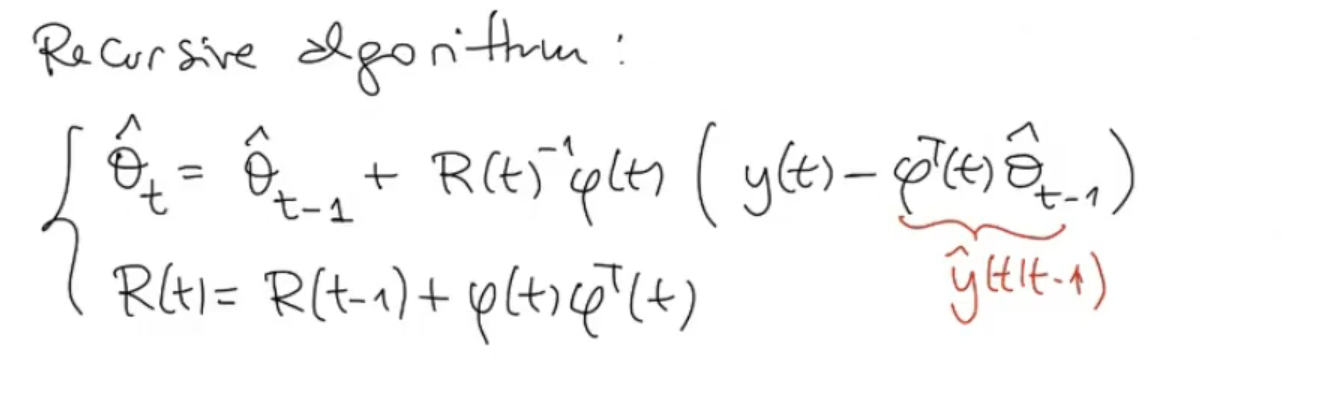 Recursive algorithm:
θ̂_t = θ̂_{t-1} + R(t)^{-1} φ(t) ( y(t) - φ^T(t) θ̂_{t-1} )
ŷ(t|t-1)
R(t) = R(t-1) + φ(t) φ^T(t)